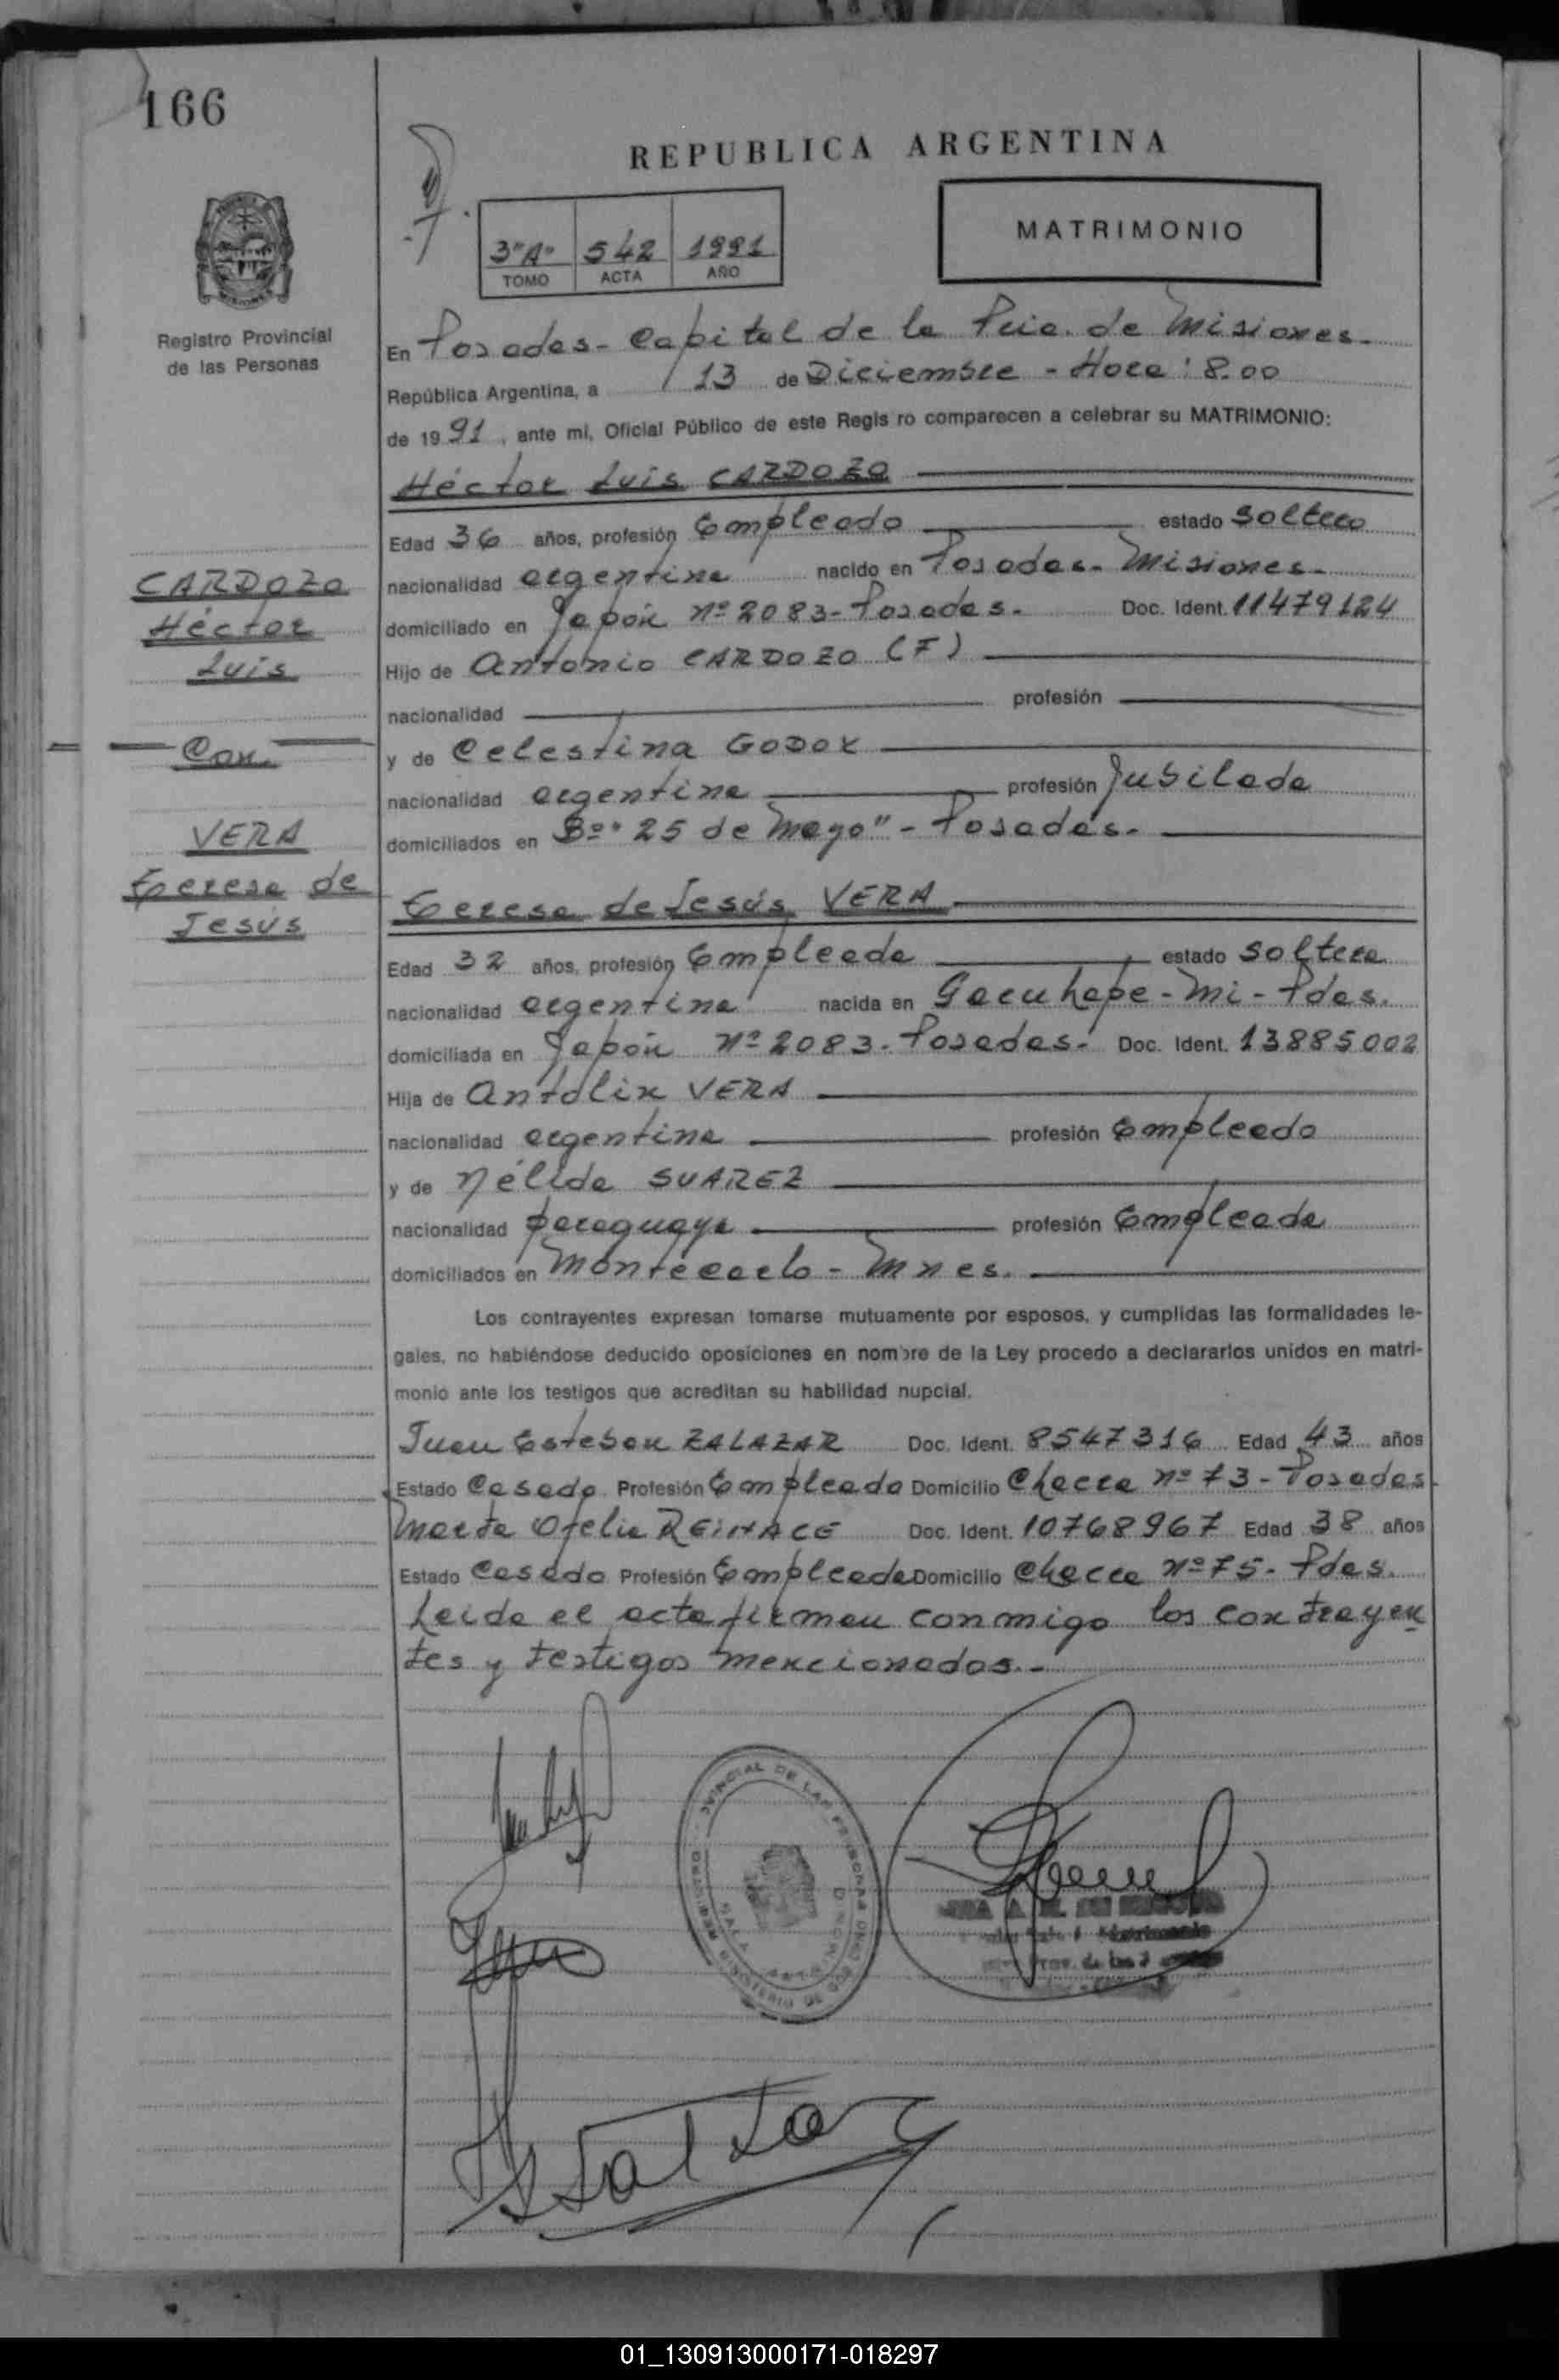 166
REPUBLICA ARGENTINA
MATRIMONIO
3"A" 542 1991
TOMO ACTA AÑO
Registro Provincial
de las Personas
En Posadas - Capital de la Pcia. de Misiones.-
República Argentina, a 13 de Diciembre - Hora: 8.00
de 1991, ante mi, Oficial Público de este Regis ro comparecen a celebrar su MATRIMONIO:
Héctor Luis CARDOZO
Edad 36 años, profesión Empleado estado soltero
nacionalidad argentina nacido en Posadas - Misiones.-
domiciliado en Japón nº 2083 - Posadas.- Doc. Ident. 11479124
Hijo de Antonio CARDOZO (F)
nacionalidad profesión
y de Celestina GODOY
nacionalidad argentina profesión Jubilada
domiciliados en Bº "25 de Mayo" - Posadas.-
CARDOZO
Héctor
Luis
Con
VERA
Teresa de
Jesús
Teresa de Jesús VERA
Edad 32 años, profesión Empleada estado soltera
nacionalidad argentina nacida en Garuhape - Mi - Pdas.
domiciliada en Japón Nº 2083 - Posadas.- Doc. Ident. 13885002
Hija de Antolin VERA
nacionalidad argentina profesión Empleado
y de Nélida SUAREZ
nacionalidad paraguaya profesión Empleada
domiciliados en Montecarlo - Mnes.
Los contrayentes expresan tomarse mutuamente por esposos, y cumplidas las formalidades le-
gales, no habiéndose deducido oposiciones en nombre de la Ley procedo a declararlos unidos en matri-
monio ante los testigos que acreditan su habilidad nupcial.
Juan Esteban ZALAZAR Doc. Ident. 8547316 Edad 43 años
Estado Casado Profesión Empleado Domicilio Chacra nº 73 - Posadas
Marta Ofelia Doc. Ident. 10768967 Edad 38 años
Estado Casado Profesión Empleada Domicilio Chacra nº 75 - Pdas.
Leida el acta firman conmigo los contrayen
tes y testigos mencionados.-
01_130913000171-018297